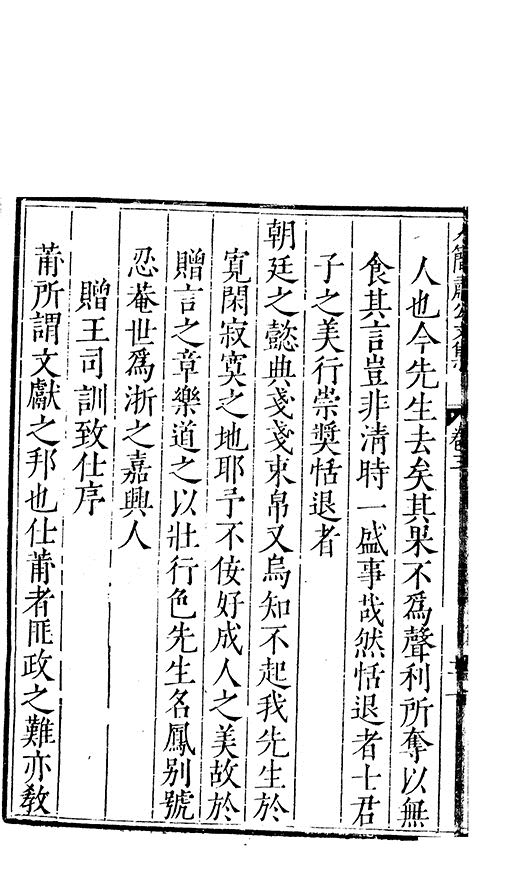 人也今先生去矣其果不爲聲利所奪以無
食其言豈非淸時一盛事哉然恬退者士君
子之美行崇奬恬退者
朝廷之懿典戔戔束帛又烏知不起我先生於
寬閑寂寞之地耶予不佞好成人之美故於
贈言之章樂道之以壯行色先生名鳳别號
忍菴世爲浙之嘉興人
贈王司訓致仕序
莆所謂文獻之邦也仕莆者匪政之難亦敎